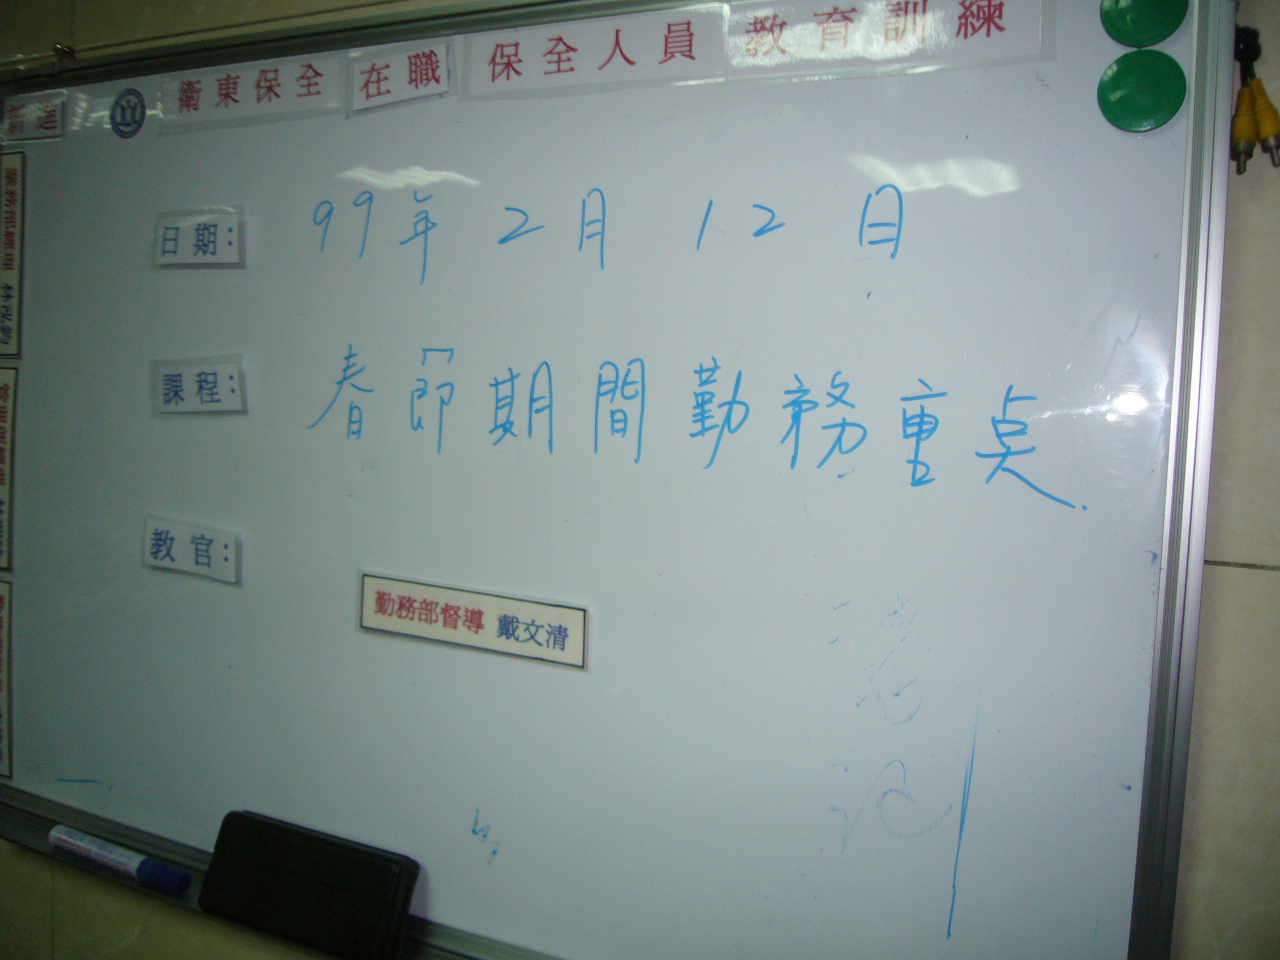 衛東保全 在職 保全人員 教育訓練
新進
日期： 99年2月12日
課程： 春節期間勤務重点
教官：
勤務部督導 戴文清